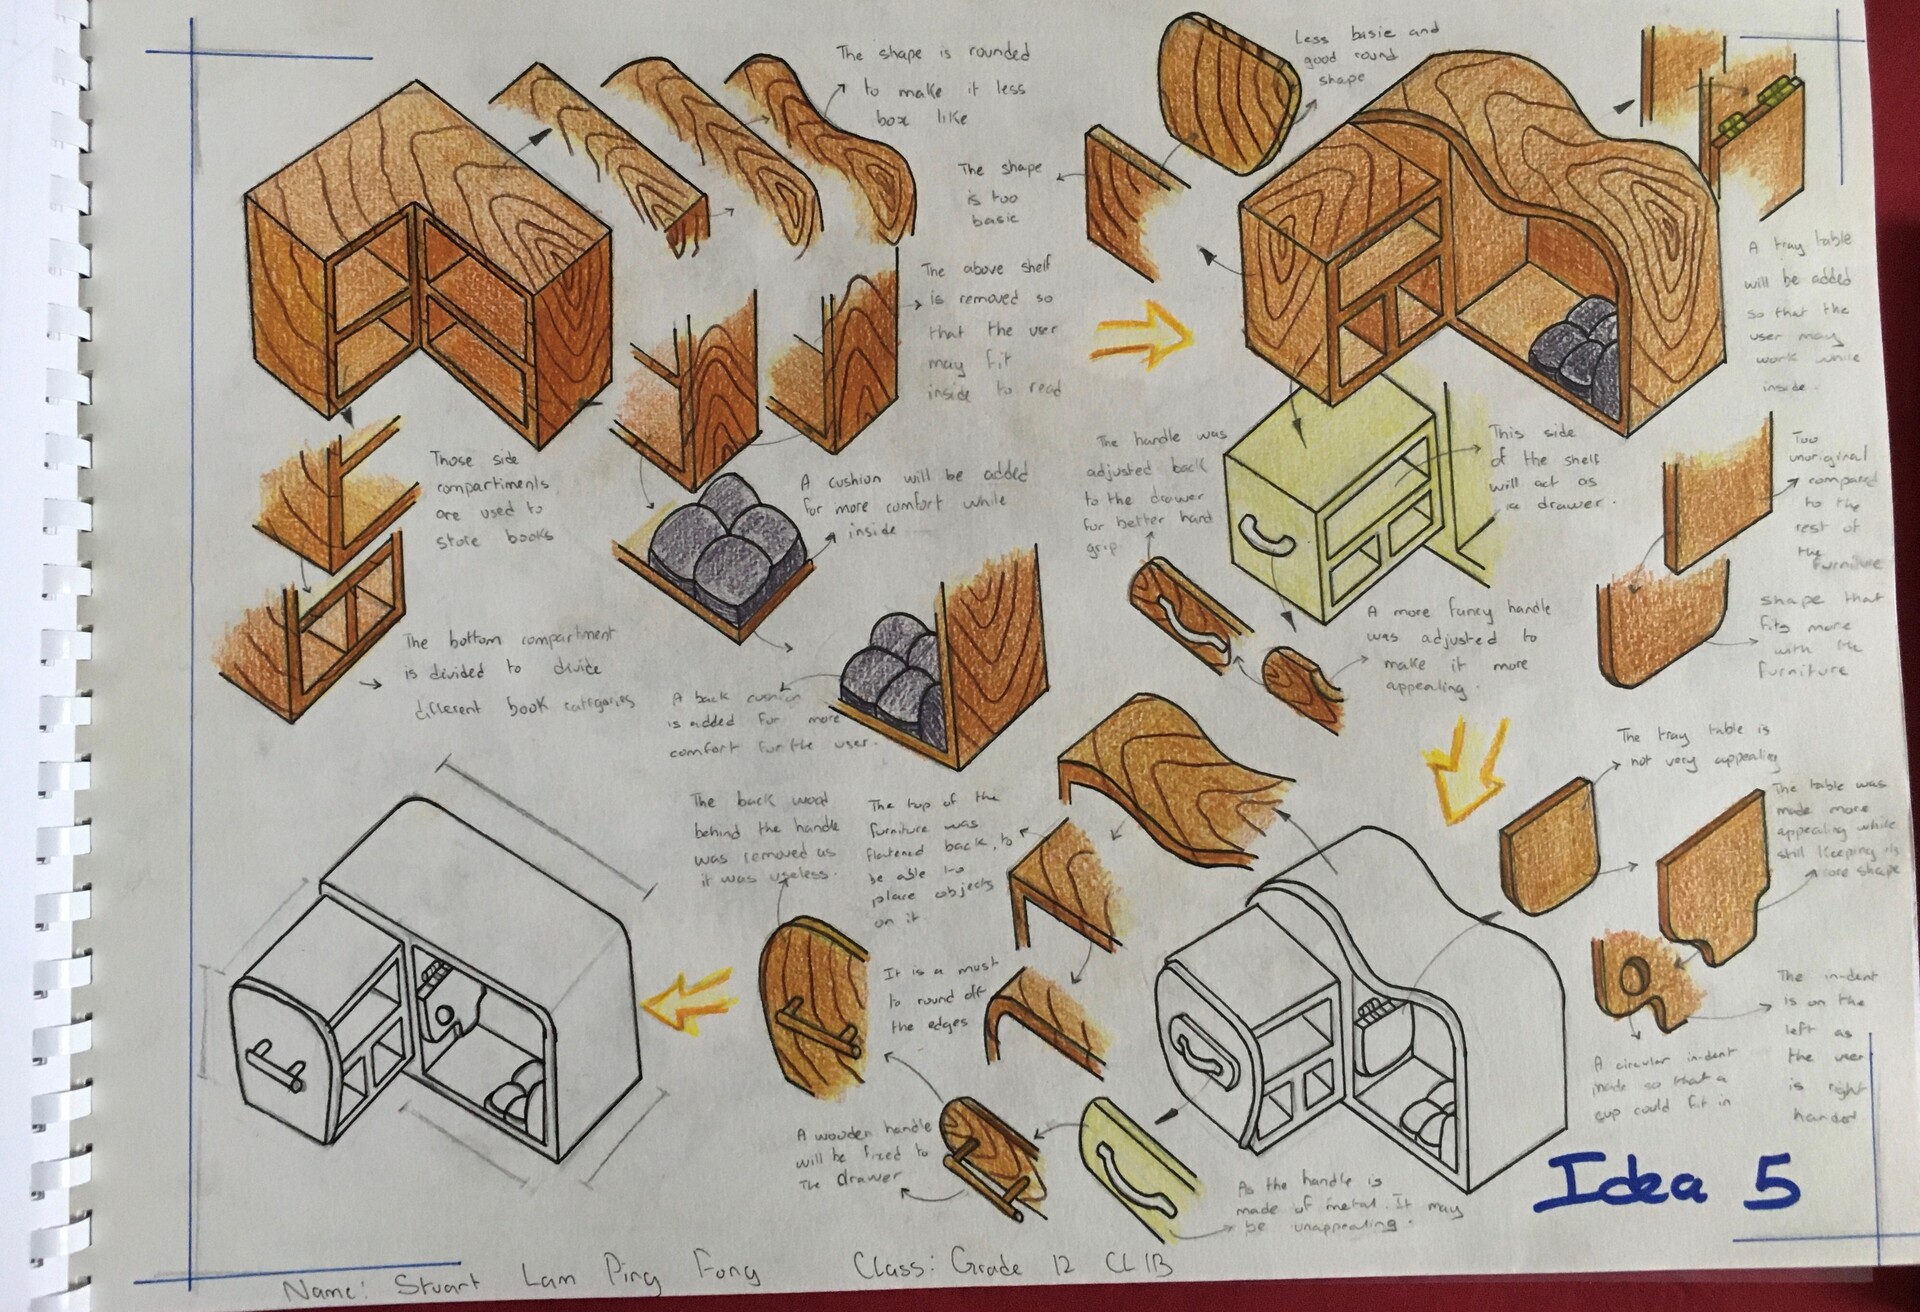 The shape is rounded
to make it less
box like
Less basic and
good round
shape
The shape
is too
basic
The above shelf
is removed so
that the user
may fit
inside to read
A tray table
will be added
so that the
user may
work while
inside.
Those side
compartiments
are used to
store books
A cushion will be added
for more comfort while
inside
The handle was
adjusted back
to the drawer
for better hand
grip.
This side
of the shelf
will act as
a drawer.
Too
unoriginal
compared
to the
rest of
the
furniture
The bottom compartment
is divided to divide
different book categories
A back cushion
is added for more
comfort for the user.
A more fancy handle
was adjusted to
make it more
appealing.
shape that
fits more
with the
furniture
The tray table is
not very appealing
The table was
made more
appealing while
still keeping its
core shape
The back wood
behind the handle
was removed as
it was useless.
The top of the
furniture was
flatened back, to
be able to
place objects
on it
It is a must
to round off
the edges
The in-dent
is on the
left as
the user
is right
handed
A circular in-dent
made so that a
cup could fit in
A wooden handle
will be fixed to
the drawer
As the handle is
made of metal. It may
be unappealing.
Idea 5
Name: Stuart Lam Ping Fong Class: Grade 12 CL1B